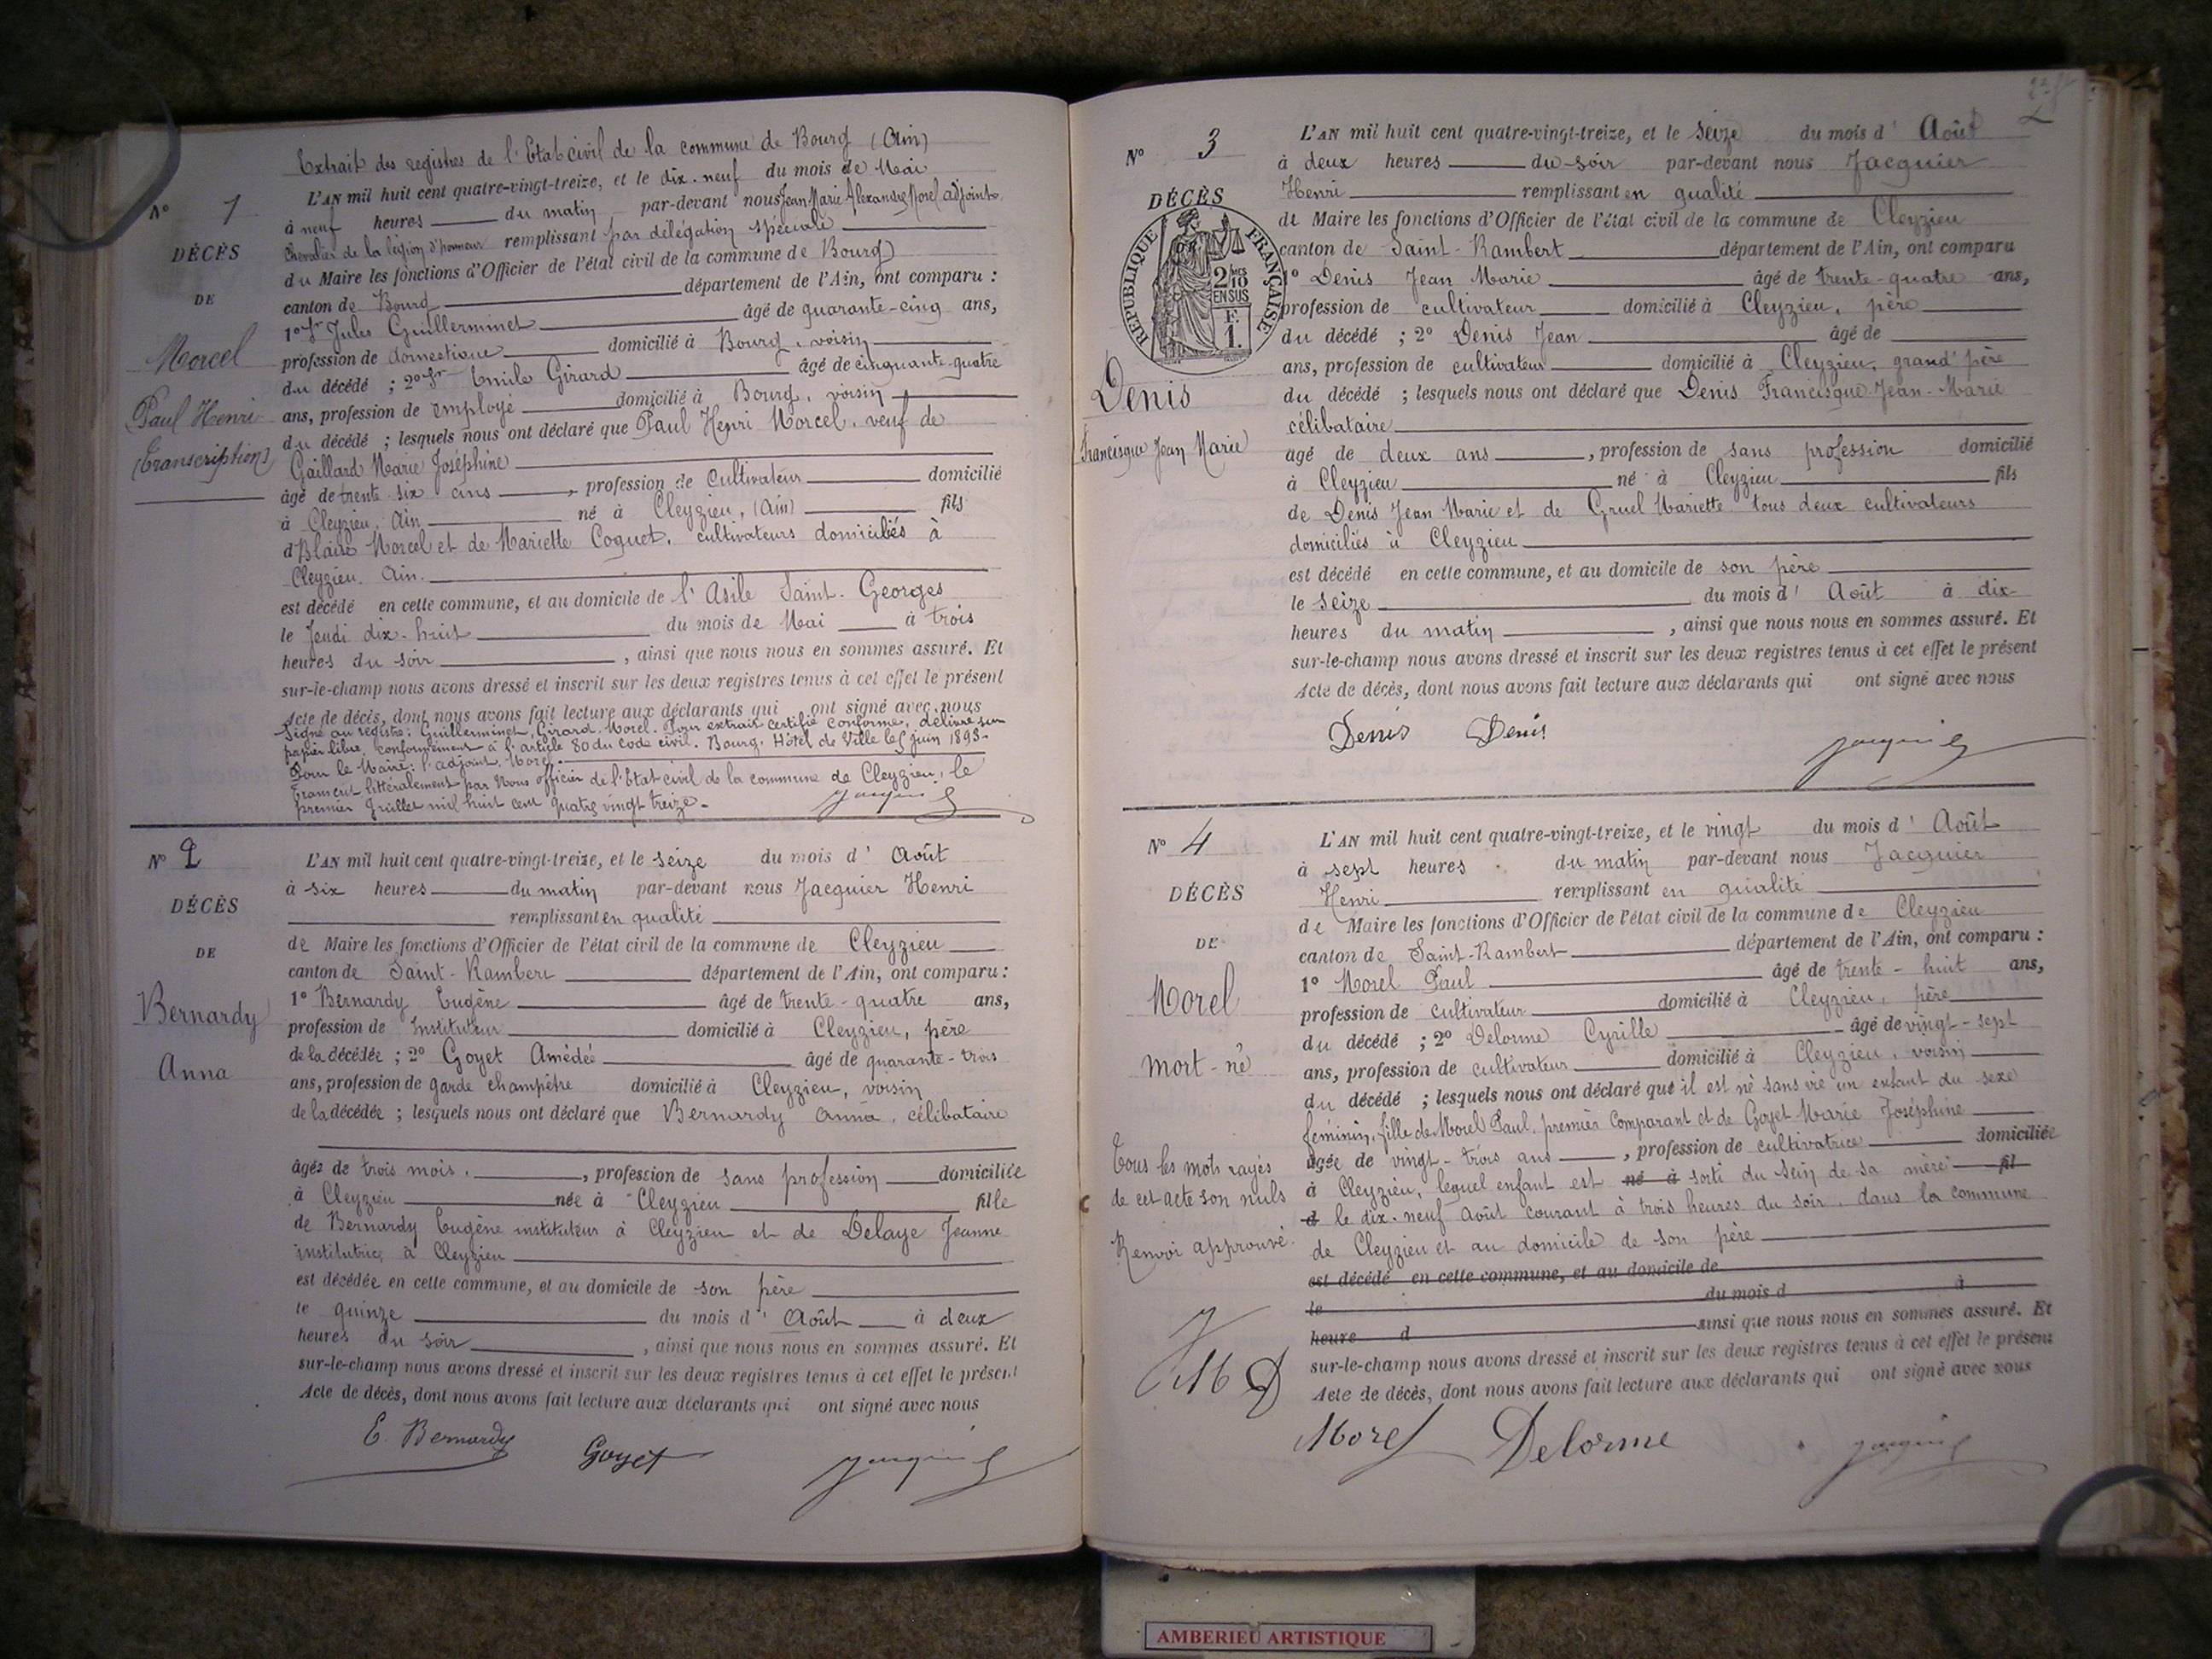 Extrait des registres de l'Etat civil de la commune de Bourg (Ain)
N° 1
L'AN mil huit cent quatre-vingt-treize, et le dix-neuf du mois de Mai
à neuf heures du matin par-devant nous Jean Marie Alexandre Morel adjoint
chevalier de la légion d'honneur remplissant par délégation spéciale
du Maire les fonctions d'Officier de l'état civil de la commune de Bourg
canton de Bourg département de l'Ain, ont comparu :
1° Sr Jules Guillerminet âgé de quarante-cinq ans,
profession de domestique domicilié à Bourg, voisin
du décédé ; 2° Sr Emile Girard âgé de cinquante-quatre
ans, profession de employé domicilié à Bourg, voisin
du décédé ; lesquels nous ont déclaré que Paul Henri Morcel, veuf de
Gaillard Marie Joséphine
âgé de trente six ans, profession de Cultivateur domicilié
à Cleyzieu, Ain né à Cleyzieu, (Ain) fils
d'Blaise Morcel et de Mariette Coquet, cultivateurs domiciliés à
Cleyzieu. Ain.
est décédé en cette commune, et au domicile de l'Asile Saint-Georges
le Jeudi dix-huit du mois de Mai à trois
heures du soir, ainsi que nous nous en sommes assuré. Et
sur-le-champ nous avons dressé et inscrit sur les deux registres tenus à cet effet le présent
Acte de décès, dont nous avons fait lecture aux déclarants qui ont signé avec nous
Signé au registre: Guillerminet, Girard, Morel. Pour extrait certifié conforme, délivré sur
papier libre, conformément à l'article 80 du Code civil. Bourg, Hôtel de Ville le 5 juin 1893.
Pour le Maire: l'adjoint, Morel.
Transcrit littéralement par Nous officier de l'Etat civil de la commune de Cleyzieu, le
premier Juillet mil huit cent quatre vingt treize.
Jacquier
DÉCÈS
DE
Morcel
Paul Henri
(Transcription)
N° 2
DÉCÈS
DE
Bernardy
Anna
L'AN mil huit cent quatre-vingt-treize, et le seize du mois d'Août
à six heures du matin par-devant nous Jacquier Henri
remplissant en qualité
de Maire les fonctions d'Officier de l'état civil de la commune de Cleyzieu
canton de Saint-Rambert département de l'Ain, ont comparu :
1° Bernardy Eugène âgé de trente-quatre ans,
profession de Instituteur domicilié à Cleyzieu, père
de la décédée ; 2° Goyet Amédée âgé de quarante-trois
ans, profession de garde champêtre domicilié à Cleyzieu, voisin
de la décédée ; lesquels nous ont déclaré que Bernardy Anna, célibataire
âgée de trois mois, profession de sans profession domiciliée
à Cleyzieu née à Cleyzieu fille
de Bernardy Eugène instituteur à Cleyzieu et de Delaye Jeanne
institutrice à Cleyzieu
est décédée en cette commune, et au domicile de son père
le quinze du mois d'Août à deux
heures du soir, ainsi que nous nous en sommes assuré. Et
sur-le-champ nous avons dressé et inscrit sur les deux registres tenus à cet effet le présent
Acte de décès, dont nous avons fait lecture aux déclarants qui ont signé avec nous
E. Bernardy Goyet Jacquier
2
N° 3
DÉCÈS
RÉPUBLIQUE FRANÇAISE
2/10
EN SUS
F.
1.
Denis
Francisque Jean Marie
L'AN mil huit cent quatre-vingt-treize, et le seize du mois d'Août
à deux heures du soir par-devant nous Jacquier
Henri remplissant en qualité
de Maire les fonctions d'Officier de l'état civil de la commune de Cleyzieu
canton de Saint-Rambert département de l'Ain, ont comparu
1° Denis Jean Marie âgé de trente-quatre ans,
profession de cultivateur domicilié à Cleyzieu, père
du décédé ; 2° Denis Jean âgé de
ans, profession de cultivateur domicilié à Cleyzieu, grand'père
du décédé ; lesquels nous ont déclaré que Denis Francisque Jean-Marie
célibataire
âgé de deux ans, profession de sans profession domicilié
à Cleyzieu né à Cleyzieu fils
de Denis Jean Marie et de Gruel Mariette tous deux cultivateurs
domiciliés à Cleyzieu
est décédé en cette commune, et au domicile de son père
le seize du mois d'Août à dix
heures du matin, ainsi que nous nous en sommes assuré. Et
sur-le-champ nous avons dressé et inscrit sur les deux registres tenus à cet effet le présent
Acte de décès, dont nous avons fait lecture aux déclarants qui ont signé avec nous
Denis Denis Jacquier
N° 4
DÉCÈS
DE
Morel
mort-né
Tous les mots rayés
de cet acte son nuls
Renvoi approuvé.
J
M D
L'AN mil huit cent quatre-vingt-treize, et le vingt du mois d'Août
à sept heures du matin par-devant nous Jacquier
Henri remplissant en qualité
de Maire les fonctions d'Officier de l'état civil de la commune de Cleyzieu
canton de Saint-Rambert département de l'Ain, ont comparu :
1° Morel Paul âgé de trente-huit ans,
profession de cultivateur domicilié à Cleyzieu, père
du décédé ; 2° Delorme Cyrille âgé de vingt-sept
ans, profession de cultivateur domicilié à Cleyzieu, voisin
du décédé ; lesquels nous ont déclaré que il est né sans vie un enfant du sexe
féminin, fille de Morel Paul, premier comparant et de Goyet Marie Joséphine
âgée de vingt-trois ans, profession de cultivatrice domiciliée
à Cleyzieu, lequel enfant est né à sorti du sein de sa mère fil
d le dix-neuf août courant à trois heures du soir, dans la commune
de Cleyzieu et au domicile de son père
est décédé en cette commune, et au domicile de
le du mois d à
heure d ainsi que nous nous en sommes assuré. Et
sur-le-champ nous avons dressé et inscrit sur les deux registres tenus à cet effet le présent
Acte de décès, dont nous avons fait lecture aux déclarants qui ont signé avec nous
Morel Delorme Jacquier
AMBERIEU ARTISTIQUE